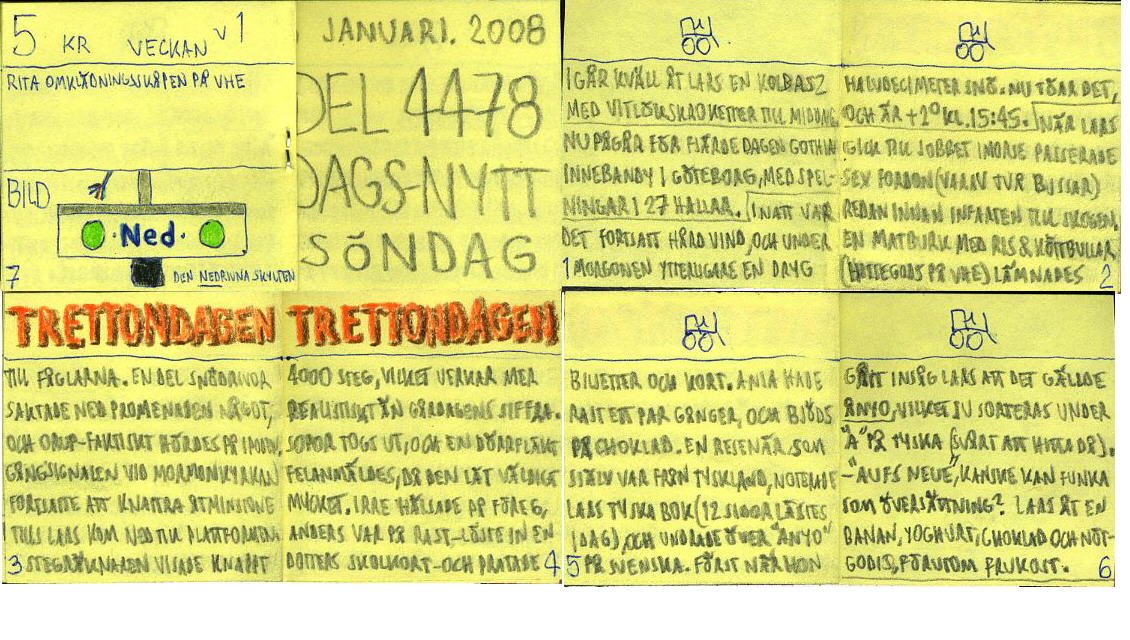 5 KR VECKAN V1
RITA OMKLÄDNINGSSKÅPEN PÅ VHE
BILD
Ned.
7 DEN NEDRIVNA SKYLTEN
JANUARI. 2008
DEL 4478
DAGS-NYTT
SÖNDAG
IGÅR KVÄLL ÅT LARS EN KOLBASZ
MED VITLÖKSKROKETTER TILL MIDDAG.
NU PÅGÅR FÖR FJÄRDE DAGEN GOTHIA
INNEBANDY I GÖTEBORG, MED SPEL-
NINGAR I 27 HALLAR. INATT VAR
DET FORTSATT HÅRD VIND, OCH UNDER
1 MORGONEN YTTERLIGARE EN DRYG
HALVDECIMETER SNÖ. NU TÖAR DET,
OCH ÄR +2° KL. 15:45. NÄR LARS
GICK TILL JOBBET IMORSE PASSERADE
SEX FORDON (VARAV TVÅ BUSSAR)
REDAN INNAN INFARTEN TILL SKOGEN.
EN MATBURK MED RIS & KÖTTBULLAR
(HITTEGODS PÅ VHE) LÄMNADES 2
TRETTONDAGEN
TILL FÅGLARNA. EN DEL SNÖDRIVOR
SAKTADE NED PROMENADEN NÅGOT,
OCH - FAKTISKT HÖRDES PÅ
GÅNGSIGNALEN VID MORMONKYRKAN
FORTSATTE ATT KNATTRA ÅTMINSTONE
TILLS LARS KOM NED TILL PLATTFORMEN.
3 STEGRÄKNAREN VISADE KNAPPT
TRETTONDAGEN
4000 STEG, VILKET VERKAR MER
REALISTISKT ÄN GÅRDAGENS SIFFRA.
SOPOR TOGS UT, OCH EN DÖRRFLÄKT
FELANMÄLDES, DÅ DEN LÄT VÄLDIGT
MYCKET. IRRE HÄLSADE PÅ FÖREG,
ANDERS VAR PÅ RAST, - LÖSTE IN EN
DOTTERS SKOLKORT - OCH PRATADE 4
BILJETTER OCH KORT. ANJA HADE
RAST ETT PAR GÅNGER, OCH BJÖDS
PÅ CHOKLAD. EN RESENÄR, SOM
SJÄLV VAR FRÅN TYSKLAND, NOTERADE
LARS TYSKA BOK (12 SIDOR LÄSTES
IDAG), OCH UNDRADE ÖVER "ÅNYO"
5 PÅ SVENSKA. FÖRST NÄR HON
GÅTT INSÅG LARS ATT DET GÄLLDE
ÅNYO, VILKET JU SORTERAS UNDER
"A" PÅ TYSKA (SVÅRT ATT HITTA DÅ).
-"AUFS NEUE", KANSKE KAN FUNKA
SOM ÖVERSÄTTNING? LARS ÅT EN
BANAN, YOGHURT, CHOKLAD OCH NÖT-
GODIS, FÖRUTOM FRUKOST. 6